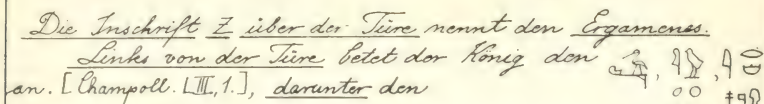 Die Inschrift Z über der Türe nennt den Ergamenes.
Links von der Türe betet der König den
an. [Champoll. LIII, 1.], darunter den